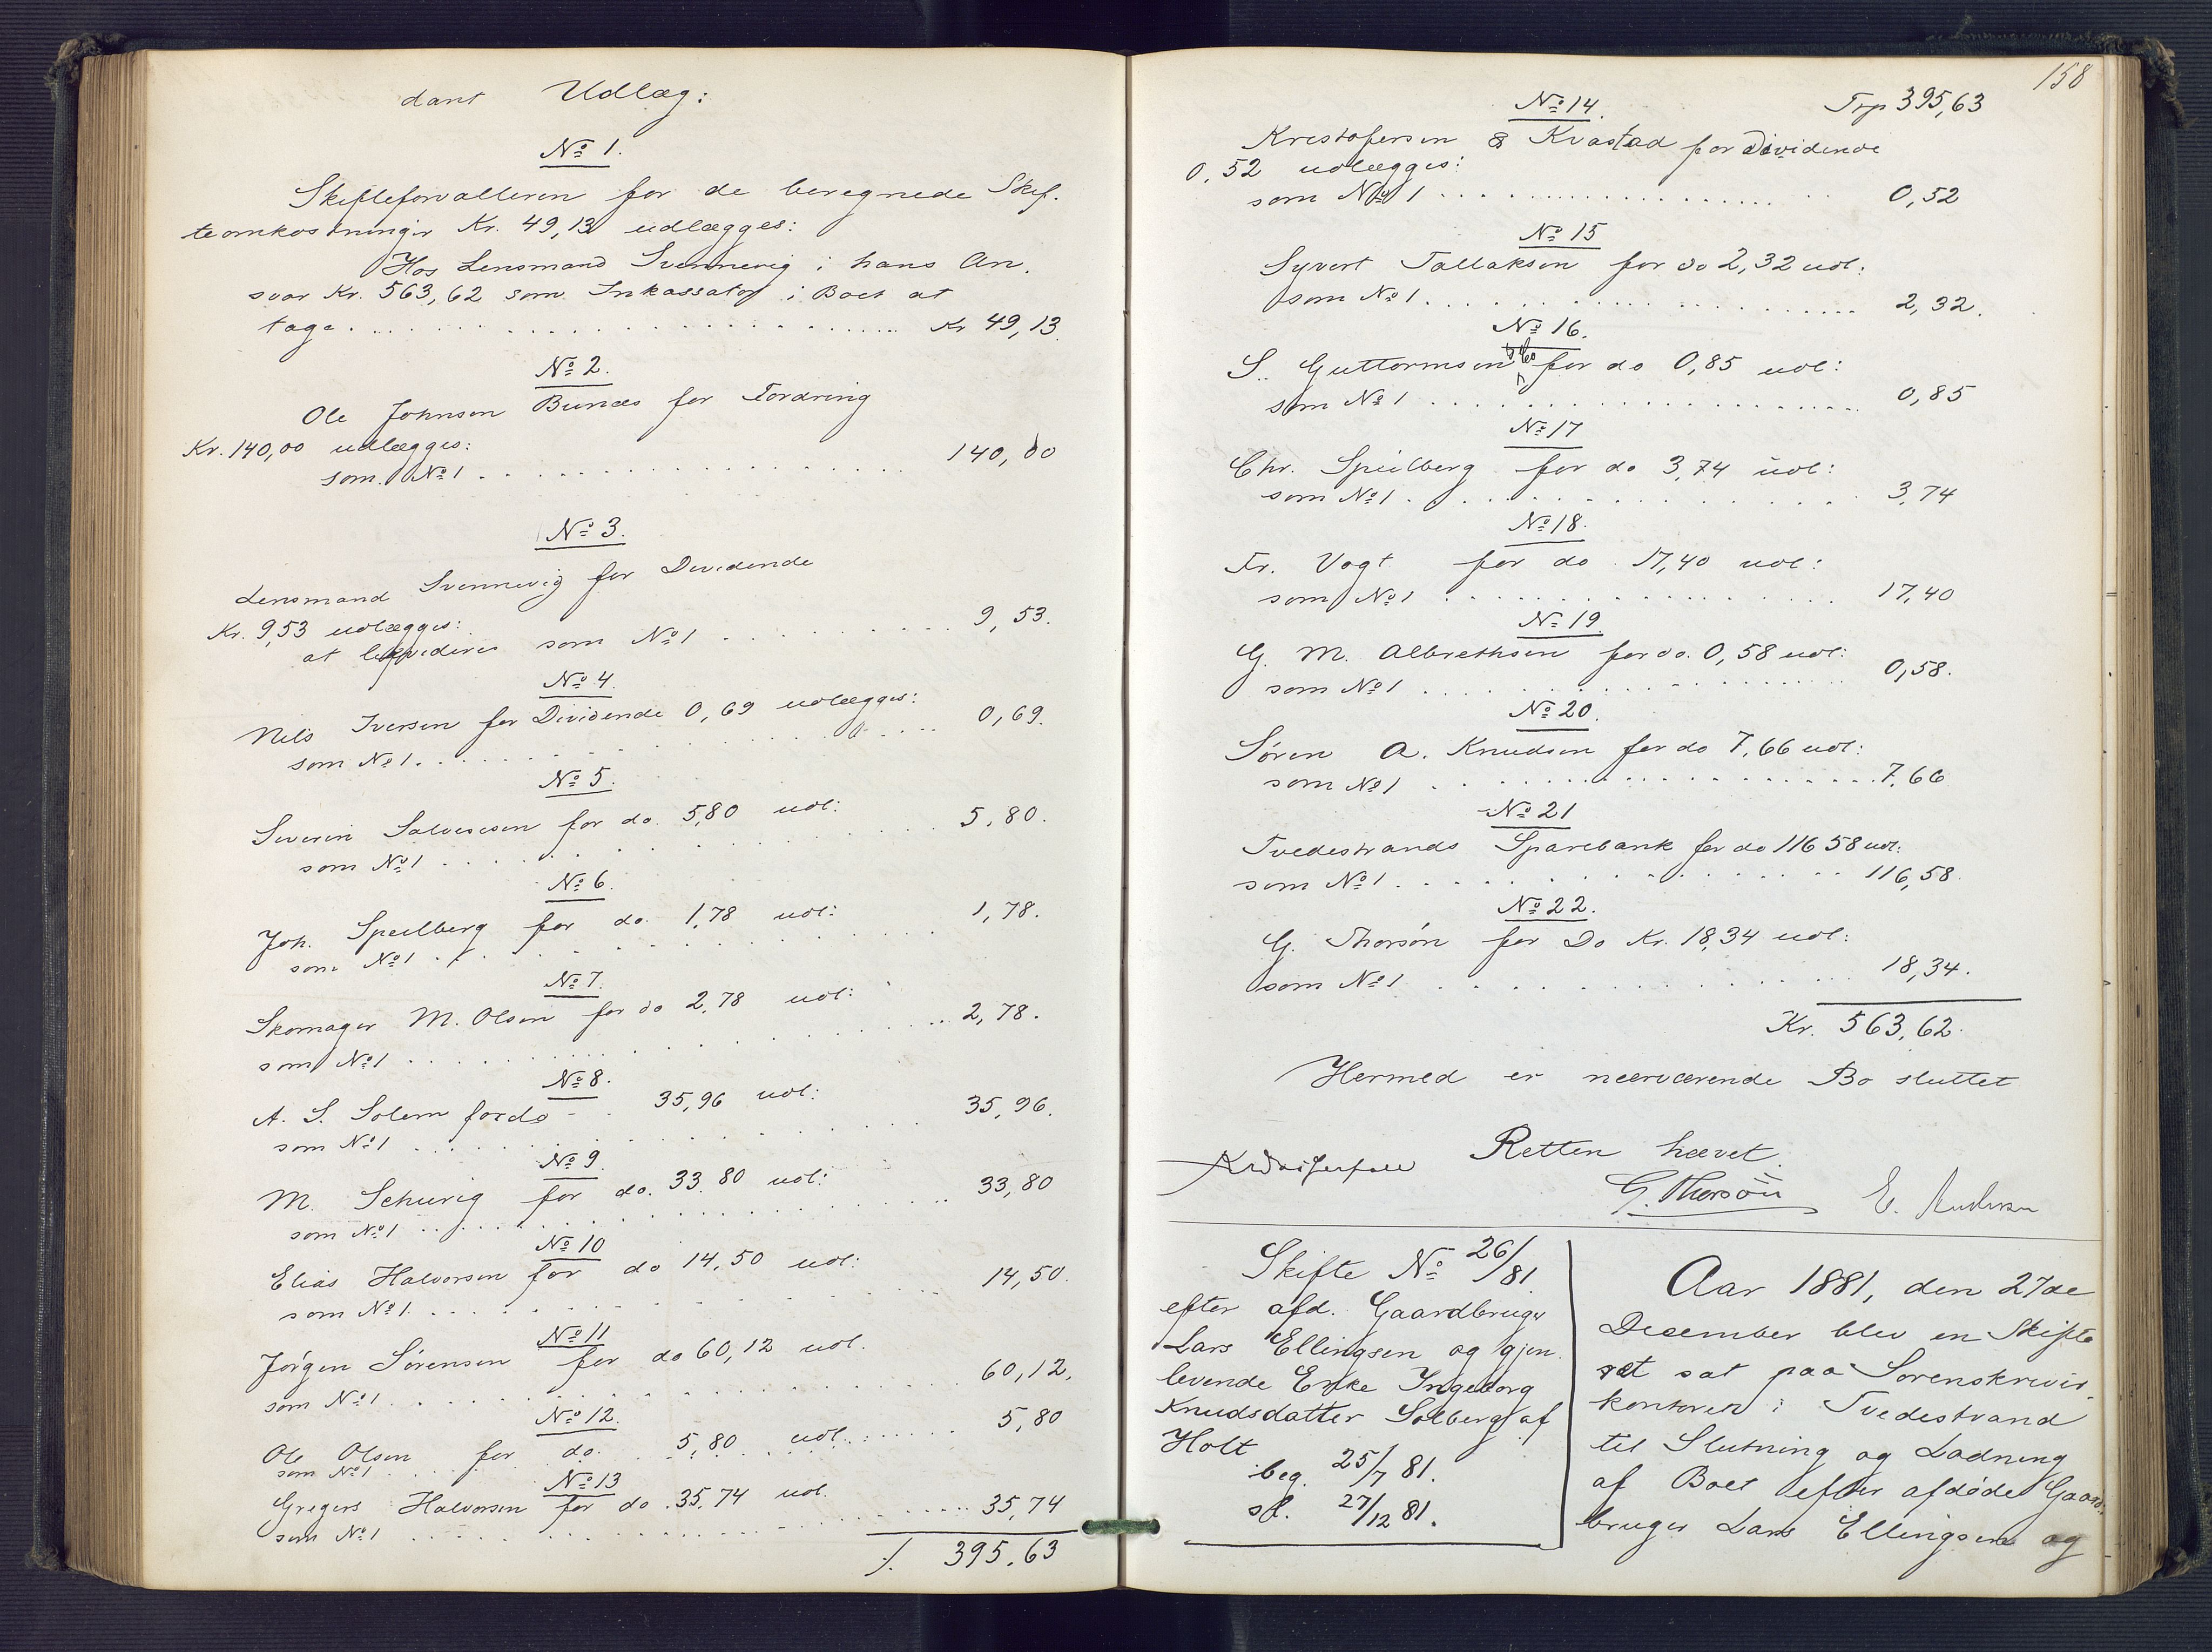 dant Udlæg:
No 1.
Skifteforvalteren for de beregnede Skif-
teomkostninger Kr. 49,13 udlægges:
Hos Lensmand Svennevig i hans An-
svar Kr. 563,62 som Inkassator i Boet at
tage . . . . . Kr 49,13
No 2.
Ole Johnsen Bunæs for Fordring
Kr. 140,00 udlægges:
som No 1 . . . . . 140,00
No 3.
Lensmand Svennevig for Dividende
Kr. 9,53 udlægges:
at likvideres som No 1 . . . . . 9,53.
No 4.
Nils Iversen for Dividende 0,69 udlægges:
som No 1 . . . . . 0,69.
No 5.
Severin Salvesen for do. 5,80 udl:
som No 1 . . . . . 5,80.
No 6.
Joh. Speilberg for do. 1,78 udl:
som No 1 . . . . . 1,78.
No 7.
Skomager M. Olsen for do 2,78 udl:
som No 1 . . . . . 2,78.
No 8.
A. S. Solem for do - 35,96 udl:
som No 1 . . . . . 35,96.
No 9
M. Schurig for do. 33,80 udl:
som No 1 . . . . . 33,80
No 10
Elias Halvorsen for do 14,50 udl:
som No 1 . . . . . 14,50.
No 11
Jørgen Sørensen for do 60,12 udl.
som No 1 . . . . . 60,12.
No 12.
Ole Olsen for do. 5,80 udl. . . . . . 5,80
som No 1
No 13
Gregers Halvorsen for do. 35,74 udl.
som No 1 . . . . . 35,74
/. 395,63
158
No 14. Trp 395,63
Kristofersen & Kvastad for Dividende
0,52 udlægges:
som No 1 . . . . . 0,52
No 15
Syvert Tallaksen for do 2,32 udl:
som No 1 . . . . . 2,32.
No 16.
S. Guttormsen & Co for do 0,85 udl:
som No 1 . . . . . 0,85
No 17
Chr. Speilberg for do 3,74 udl:
som No 1 . . . . . 3,74
No 18.
Fr. Vogt for do 17,40 udl:
som No 1 . . . . . 17,40
No 19.
G. M. Albrethsen for do. 0,58 udl:
som No 1 . . . . . 0,58.
No 20.
Søren A. Knudsen for do 7,66 udl:
som No 1 . . . . . 7,66
No 21
Tvedestrands Sparebank for do 116 58 udl:
som No 1 . . . . . 116,58.
No 22.
G. Thorsøn for Do Kr. 18,34 udl:
som No 1 . . . . . 18,34.
Kr. 563,62.
Hermed er nærværende Bo sluttet
Retten hævet.
G. Thorsøn E. Andersen
Skifte No 26/81
efter afd. Gaardbruger
Lars Ellingsen og gjen-
levende Enke Ingeborg
Knudsdatter Solberg af
Holt
beg. 25/7 81.
sl. 27/12 81.
Aar 1881, den 27de
December blev en Skifte
ret sat paa Sorenskriver-
kontoret i Tvedestrand
til Slutning og Ladning
af Boet efter afdøde Gaard-
bruger Lars Ellingsen og